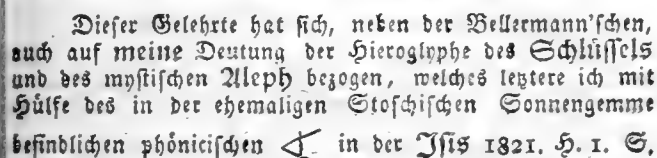 Dieſer Gelehrte hat ſich, neben der Bellermann'ſchen,
auch auf meine Deutung der Hieroglyphe des Schlüſſels
und des myſtiſchen Aleph bezogen, welches letztere ich mit
Hülfe des in der ehemaligen Stoſchiſchen Sonnengemme
befindlichen phöniciſchen ∢ in der Iſis 1821. H. 1. S.